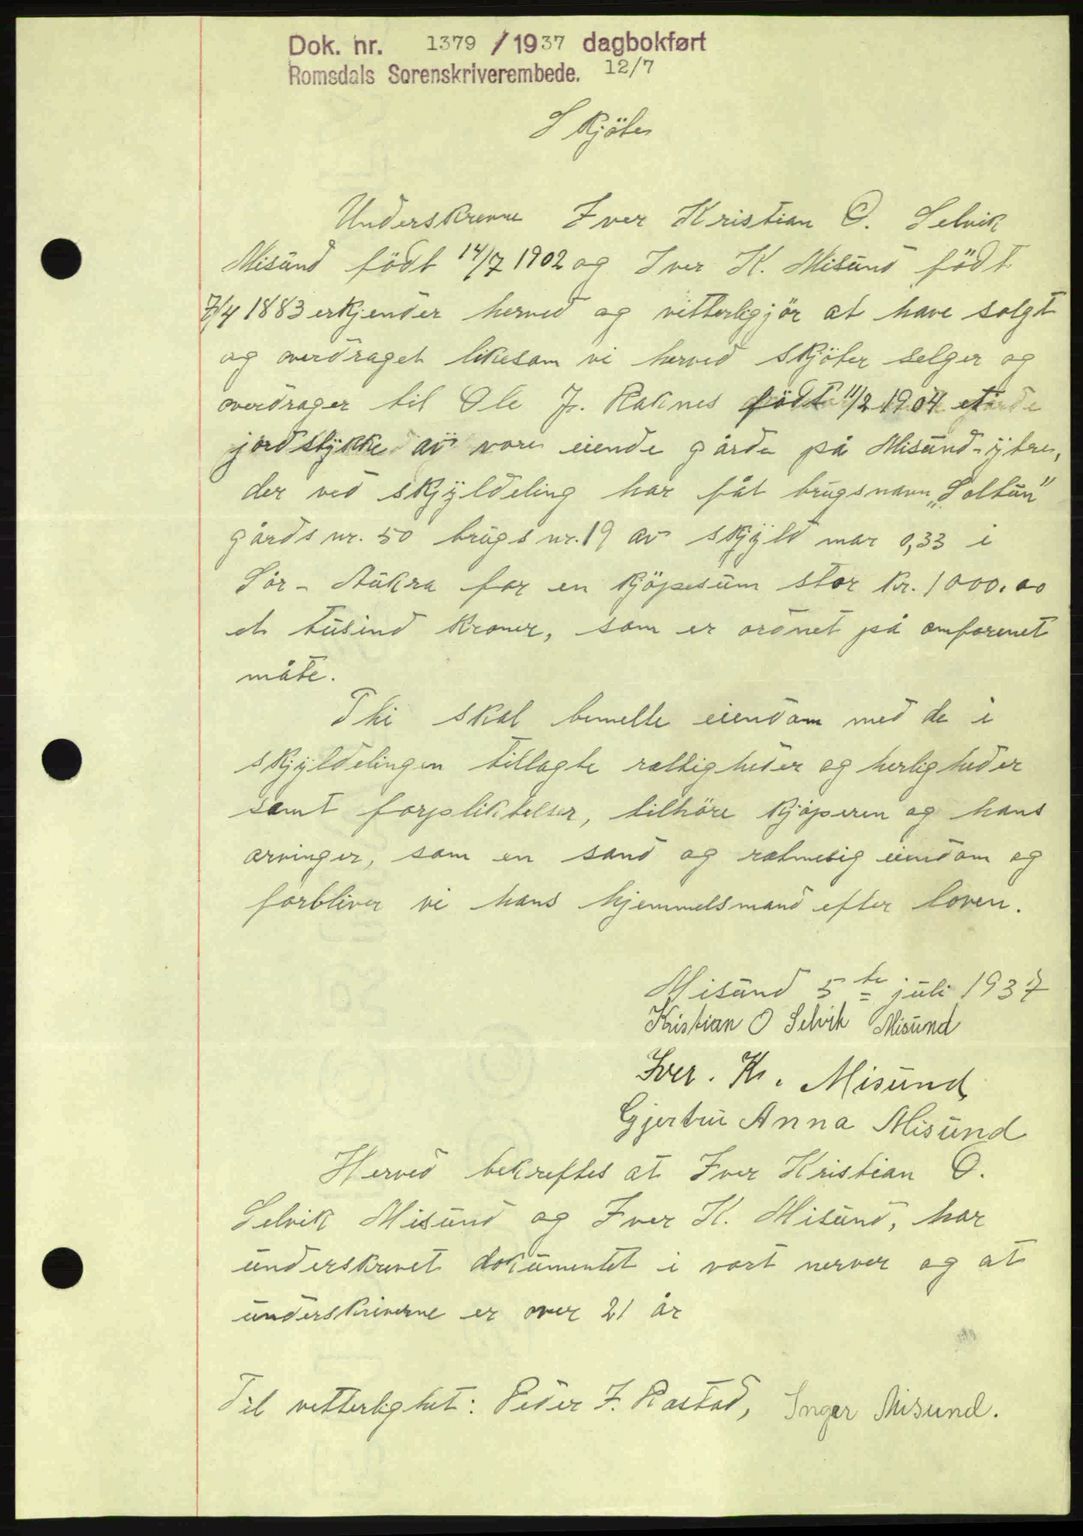 Dok. nr. 1379 / 1937 dagbokført
Romsdals Sorenskriverembede. 12/7
Skjöte
Underskrevne Iver Kristian O. Selvik
Misund födt 14/7 1902 og Iver K. Misund födt
7/4 1883 erkjender herved og vitterligjör at have solgt
og overdraget likesom vi herved skjöter selger og
overdrager til Ole J. Raknes födt 11/2 1904 et
jordstykke av vore eiende gårde på Misund-ytre,
der ved skyldeling har fåt brugsnavn „Soltun"
gårds nr. 50 brugs nr. 19 av skyld mar 0,33 i
Sör-Aukra for en kjöpesum stor kr. 1000.00
et tusind kroner, som er ordnet på omforenet
måte.
Thi skal bemelte eiendom med de i
skyldelingen tillagte rettigheder og herligheder
samt forpliktelser, tilhöre kjöperen og hans
arvinger, som en sand og retmesig eiendom og
forbliver vi hans hjemmelsmand efter loven.
Misund 5te juli 1937
Kristian O Selvik Misund
Iver. K. Misund
Gjertru Anna Misund
Herved bekreftes at Iver Kristian O.
Selvik Misund og Iver K. Misund, har
underskrevet dokumentet i vort nerver og at
underskriverne er over 21 år
Til vitterlighet: Peder J. Rastad, Inger Misund.